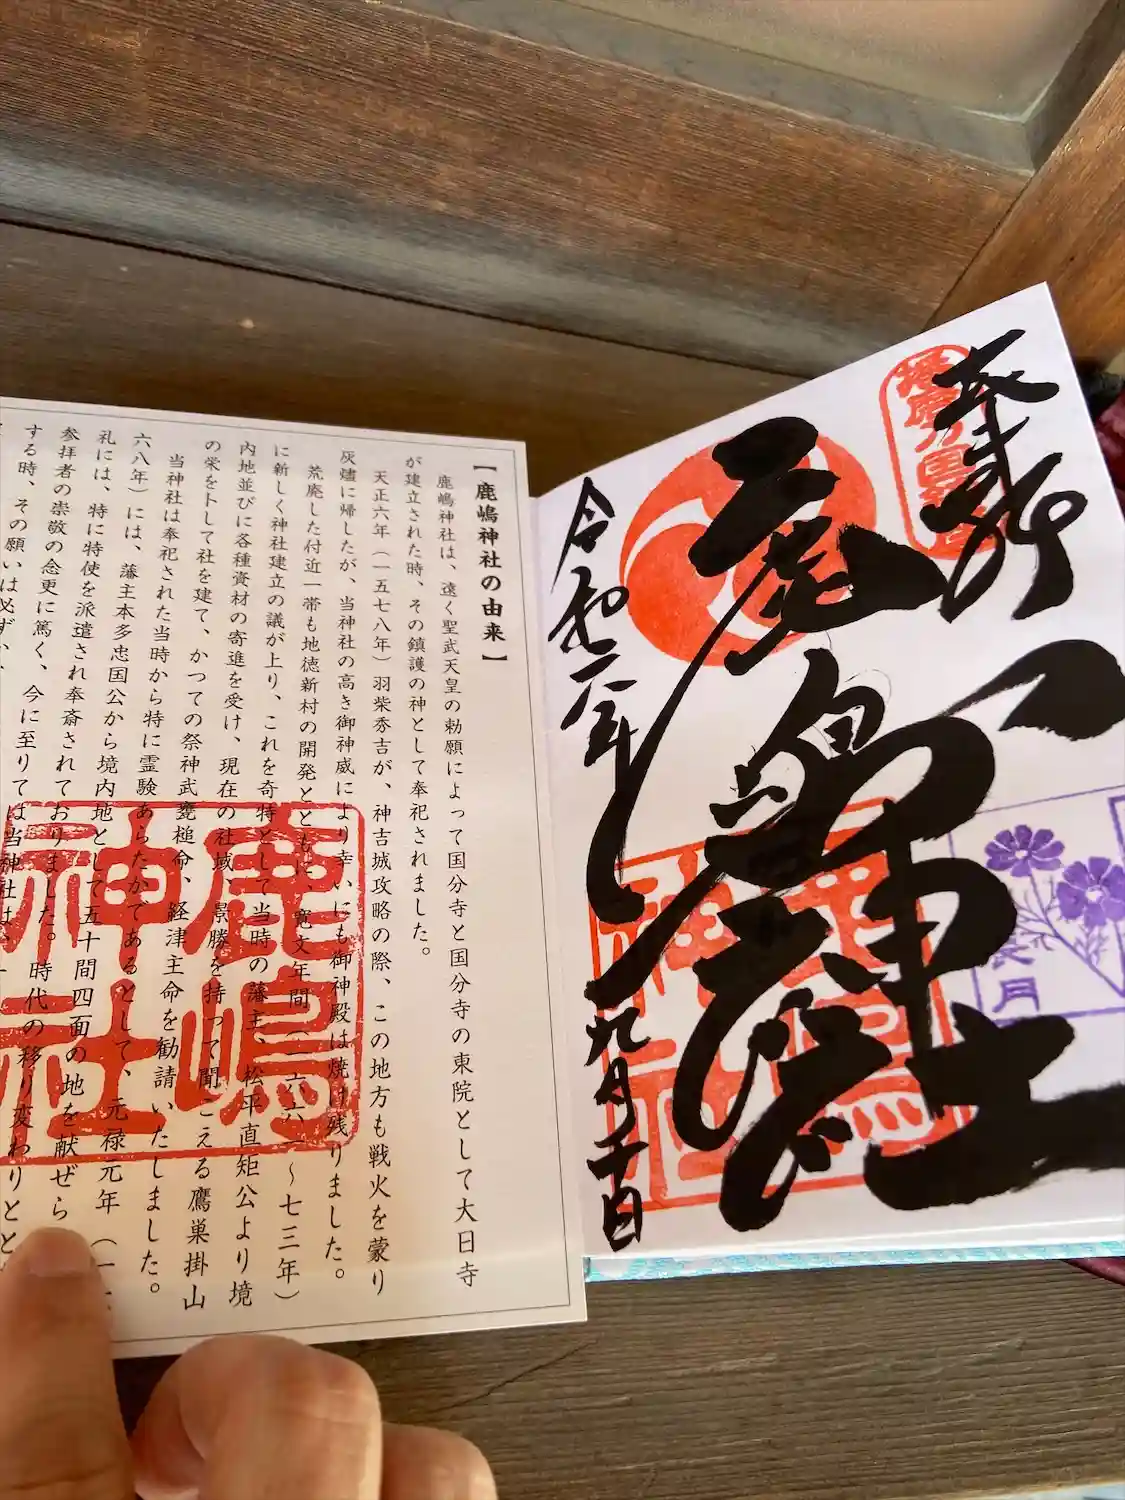 奉拝
播磨乃国
鹿嶋神社
長月
令和二年九月二十日
鹿嶋神社
【鹿嶋神社の由来】
鹿嶋神社は、遠く聖武天皇の勅願によって国分寺と国分寺の東院として大日寺
が建立された時、その鎮護の神として奉祀されました。
天正六年(一五七八年)羽柴秀吉が、神吉城攻略の際、この地方も戦火を蒙り
灰燼に帰したが、当神社の高き御神威により幸いにも御神殿は焼け残りました。
荒廃した付近一帯も地徳新村の開発とともに、寛文年間(一六六一~七三年)
に新しく神社建立の議が上り、これを奇特として当時の藩主、松平直矩公より境
内地並びに各種資材の寄進を受け、現在の社域、景勝を持って聞こえる鷹巣掛山
の栄をトして社を建て、かつての祭神武甕槌命、経津主命を勧請いたしました。
当神社は奉祀された当時から特に霊験あらたかであるとして、元禄元年(一六
六八年)には、藩主本多忠国公から境内地として五十間四面の地を献ぜら
礼には、特に特使を派遣され奉斎されておりました。時代の移り変わりとと
参拝者の崇敬の念更に篤く、今に至りては当神社は、一
する時、その願いは必ずか
鹿嶋神社